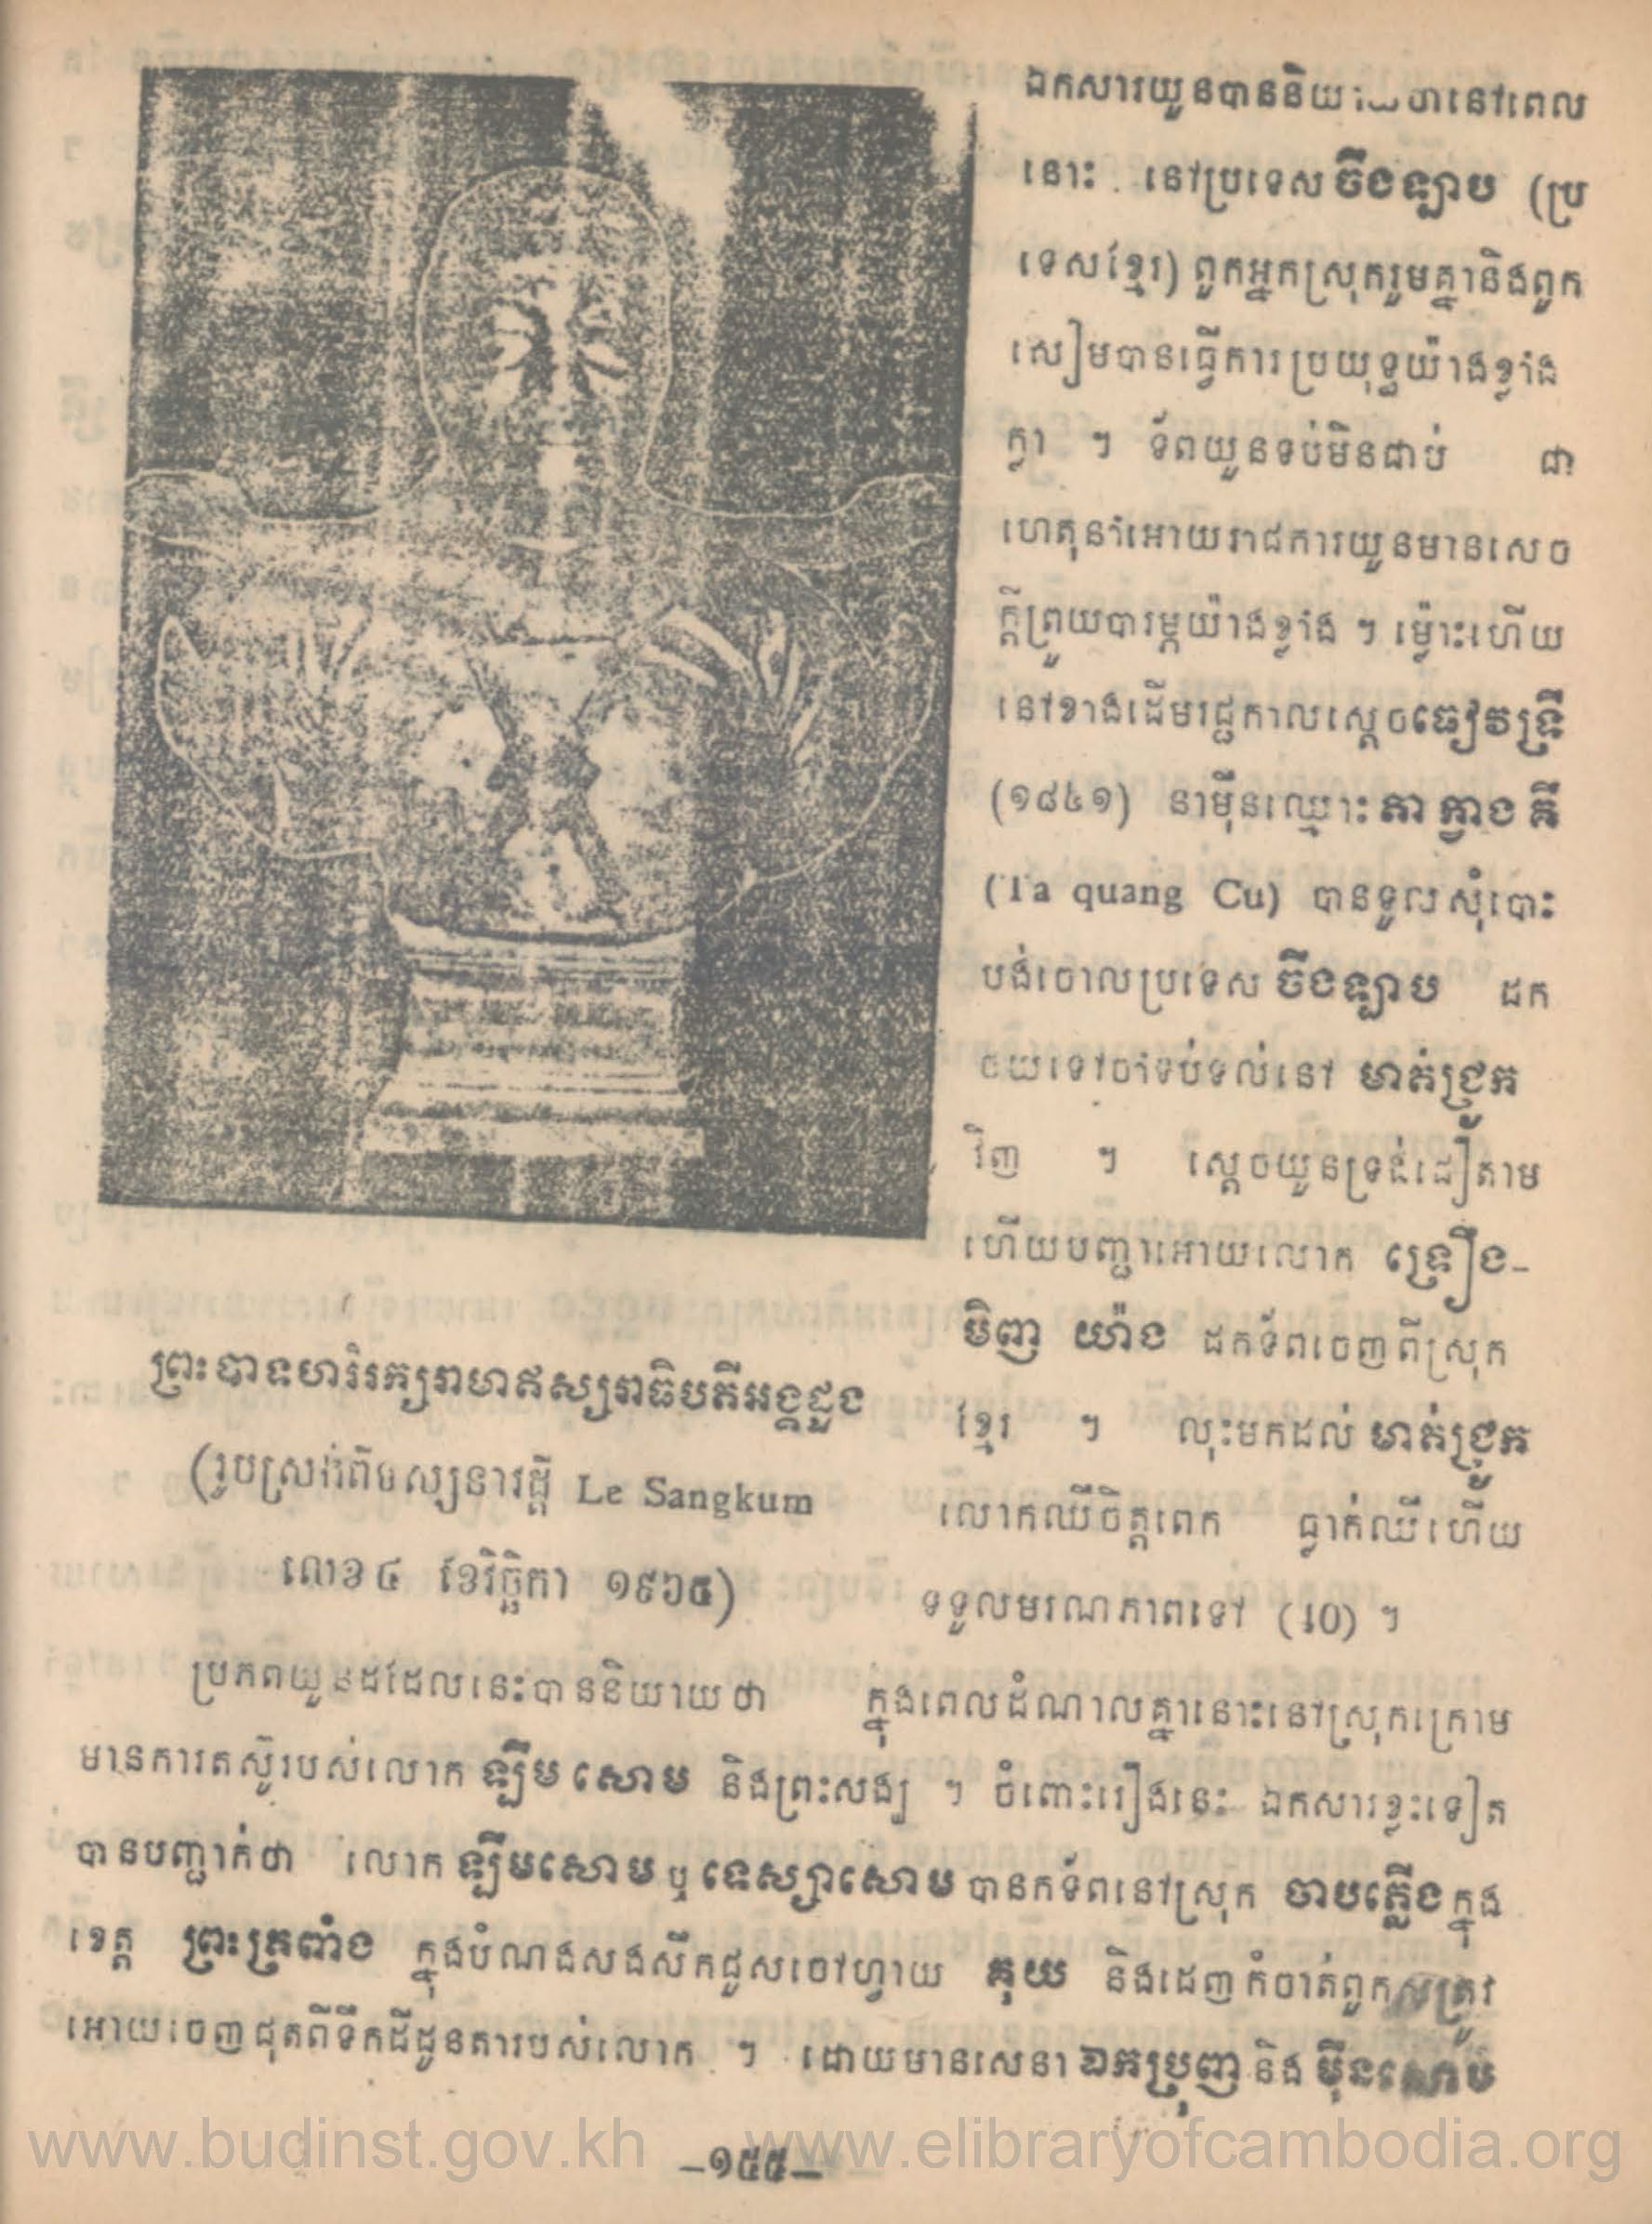 ឯកសារយួនបាននិយាយថានៅពេល
នោះ នៅប្រទេសចឹងឡាប (ប្រ
ទេសខ្មែរ) ពួកអ្នកស្រុករួមគ្នានិងពួក
សៀមបានធ្វើការប្រយុទ្ធយ៉ាងខ្លាំង
ក្លា ។ ទ័ពយួនទប់មិនជាប់ ជា
ហេតុនាំអោយរាជការយួនមានសេច
ក្តីព្រួយបារម្ភយ៉ាងខ្លាំង ។ ម្ល៉ោះហើយ
នៅខាងដើមរជ្ជកាលស្តេចធៀវទ្រី
(១៨៤១) នាម៉ឺនឈ្មោះ តា ក្វាង គឺ
(Ta quang Cu) បានទូលសុំបោះ
បង់ចោលប្រទេស ចឹងឡាប ដក
ថយទៅចាំទប់ទល់នៅ មាត់ជ្រូក
វិញ ។ ស្តេចយួនទ្រង់ជឿតាម
ហើយបញ្ជាអោយលោក ទ្រឿង-
មិញ យ៉ាង ដកទ័ពចេញពីស្រុក
ខ្មែរ ។ លុះមកដល់ មាត់ជ្រូក
លោកឈឺចិត្តពេក ធ្លាក់ឈឺហើយ
ទទួលមរណភាពទៅ (40) ។
ព្រះបាទហរិរក្សរាមាឥស្សរាធិបតីអង្គដួង
(រូបស្រង់ពីទស្សនាវដ្តី Le Sangkum
លេខ៤ ខែវិច្ឆិកា ១៩៦៥)
ប្រភពយួនដដែលនេះបាននិយាយថា ក្នុងពេលដំណាលគ្នានោះនៅស្រុកក្រោម
មានការតស៊ូរបស់លោក ឡឹម សោម និងព្រះសង្ឃ ។ ចំពោះរឿងនេះ ឯកសារខ្លះទៀត
បានបញ្ជាក់ថា លោក ឡឹមសោម ឬ ទេស្សាសោម បានកទ័ពនៅស្រុក ចាបភ្លើង ក្នុង
ខេត្ត ព្រះត្រពាំង ក្នុងបំណងសងសឹកជួសចៅហ្វាយ គុយ និងដេញកំចាត់ពួកសត្រូវ
អោយចេញផុតពីទឹកដីដូនតារបស់លោក ។ ដោយមានសេនា ឯកប្រុញ និង ម៉ឺនសោម
–១៥៥–
www.budinst.gov.kh
www.elibraryofcambodia.org